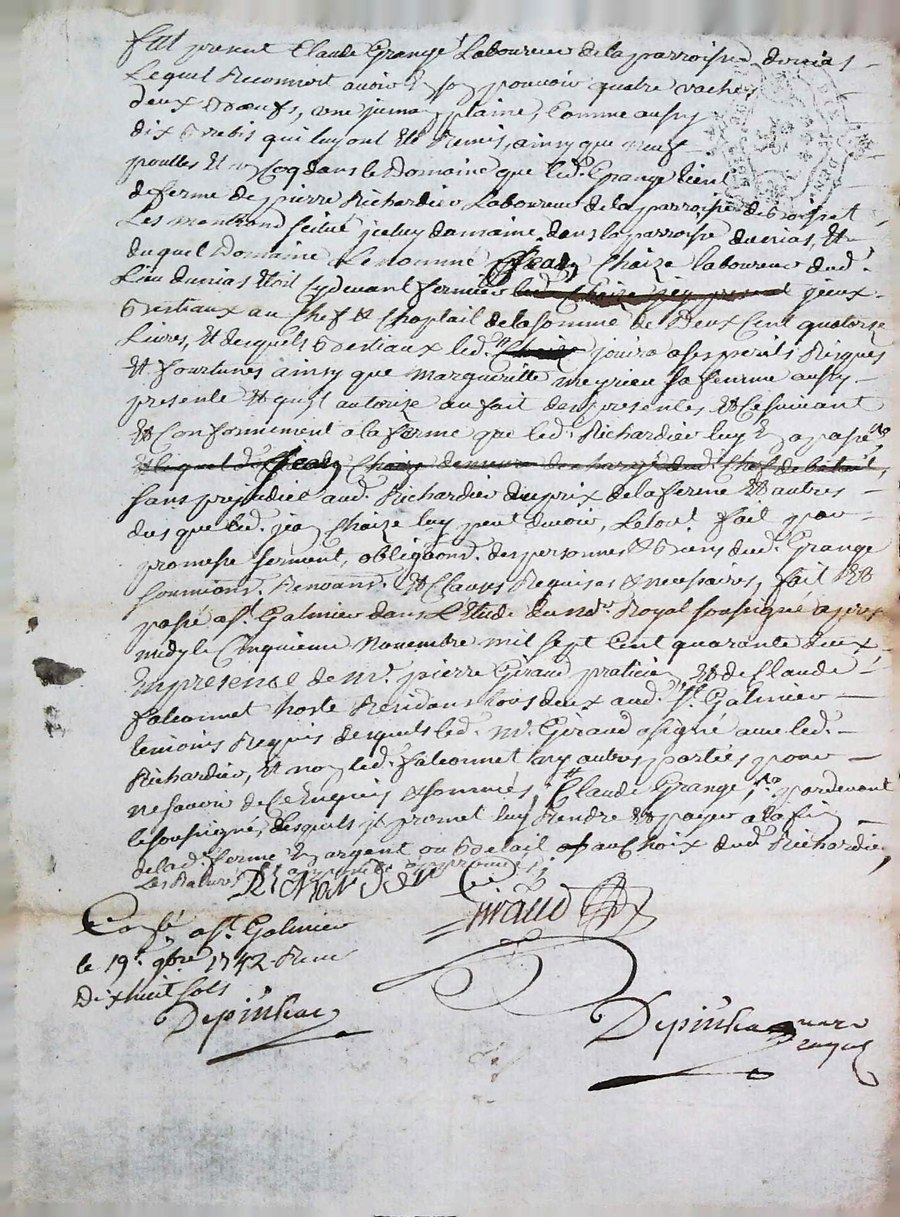 fut present Claude Grange Laboureur de la parroisse dunias
Lequel Reconnoit avoir En son pouvoir quatre vaches
deux Boeufs, une jument plaine, Comme aussy
dix Brebis qui luy ont Eté Remis, ainsy que neuf
poulles Et un Coq dans le Domaine que led. Grange tient
de ferme de pierre Richardier Laboureur de la parroisse de Boisset
Les montrond scitué jceluy domaine dans la parroisse dunias, Et
duquel Domaine Le nommé Jean Chaize laboureur dud.
Lieu dunias Etoit Cydevant fermier led. Chaize jcy present jceux
Bestiaux au Chef Et Chaptail de la somme de Deux Cent quatorze
Livres, Et desquels Bestiaux led. jouira a ses perils Risques
Et fourtunes ainsy que Margueritte Meyrieu sa femme aussy
presente Et quil autorize au fait des presentes, Et Ce suivant
Et Conformement a la ferme que led. Richardier luy En a passé
Et lequel d. Jean Chaize demeure dechargé dud. Chef de betail,
sans prejudice aud. Richardier du prix de la ferme Et autres
dus que led. jean Chaize luy peut devoir, Le tout fait par
promesse serment, obligaons. des personnes Et Biens dud. Grange
soumions. Renoans. Et Clauses Requises Et necessaires, fait Et
passé a St. Galmier dans L'Etude du nore. Royal soussigné apres
midy le Cinquieme Novembre mil sept Cent quarante deux
En presence de Mr. pierre Giraud praticien, Et de Claude
falconnet hoste Residans tous deux aud. St. Galmier
temoins Requis desquels led. Mr. Giraud a signé avec led.
Richardier, Et non led. falconnet ny autres parties pour
ne savoir de Ce Enquis Et sommés, Claude Grange, pardevant
le soussigné, desquels jl promet luy Rendre Et payer a la fin
de lad. ferme En argent ou Betail au Choix dud. Richardier,
Les Ratures
Richardier
Giraud
Conllé a St. Galmier
le 19e. 9bre 1742 Reçu
Dix huit sols
Depinhac
Depinhac